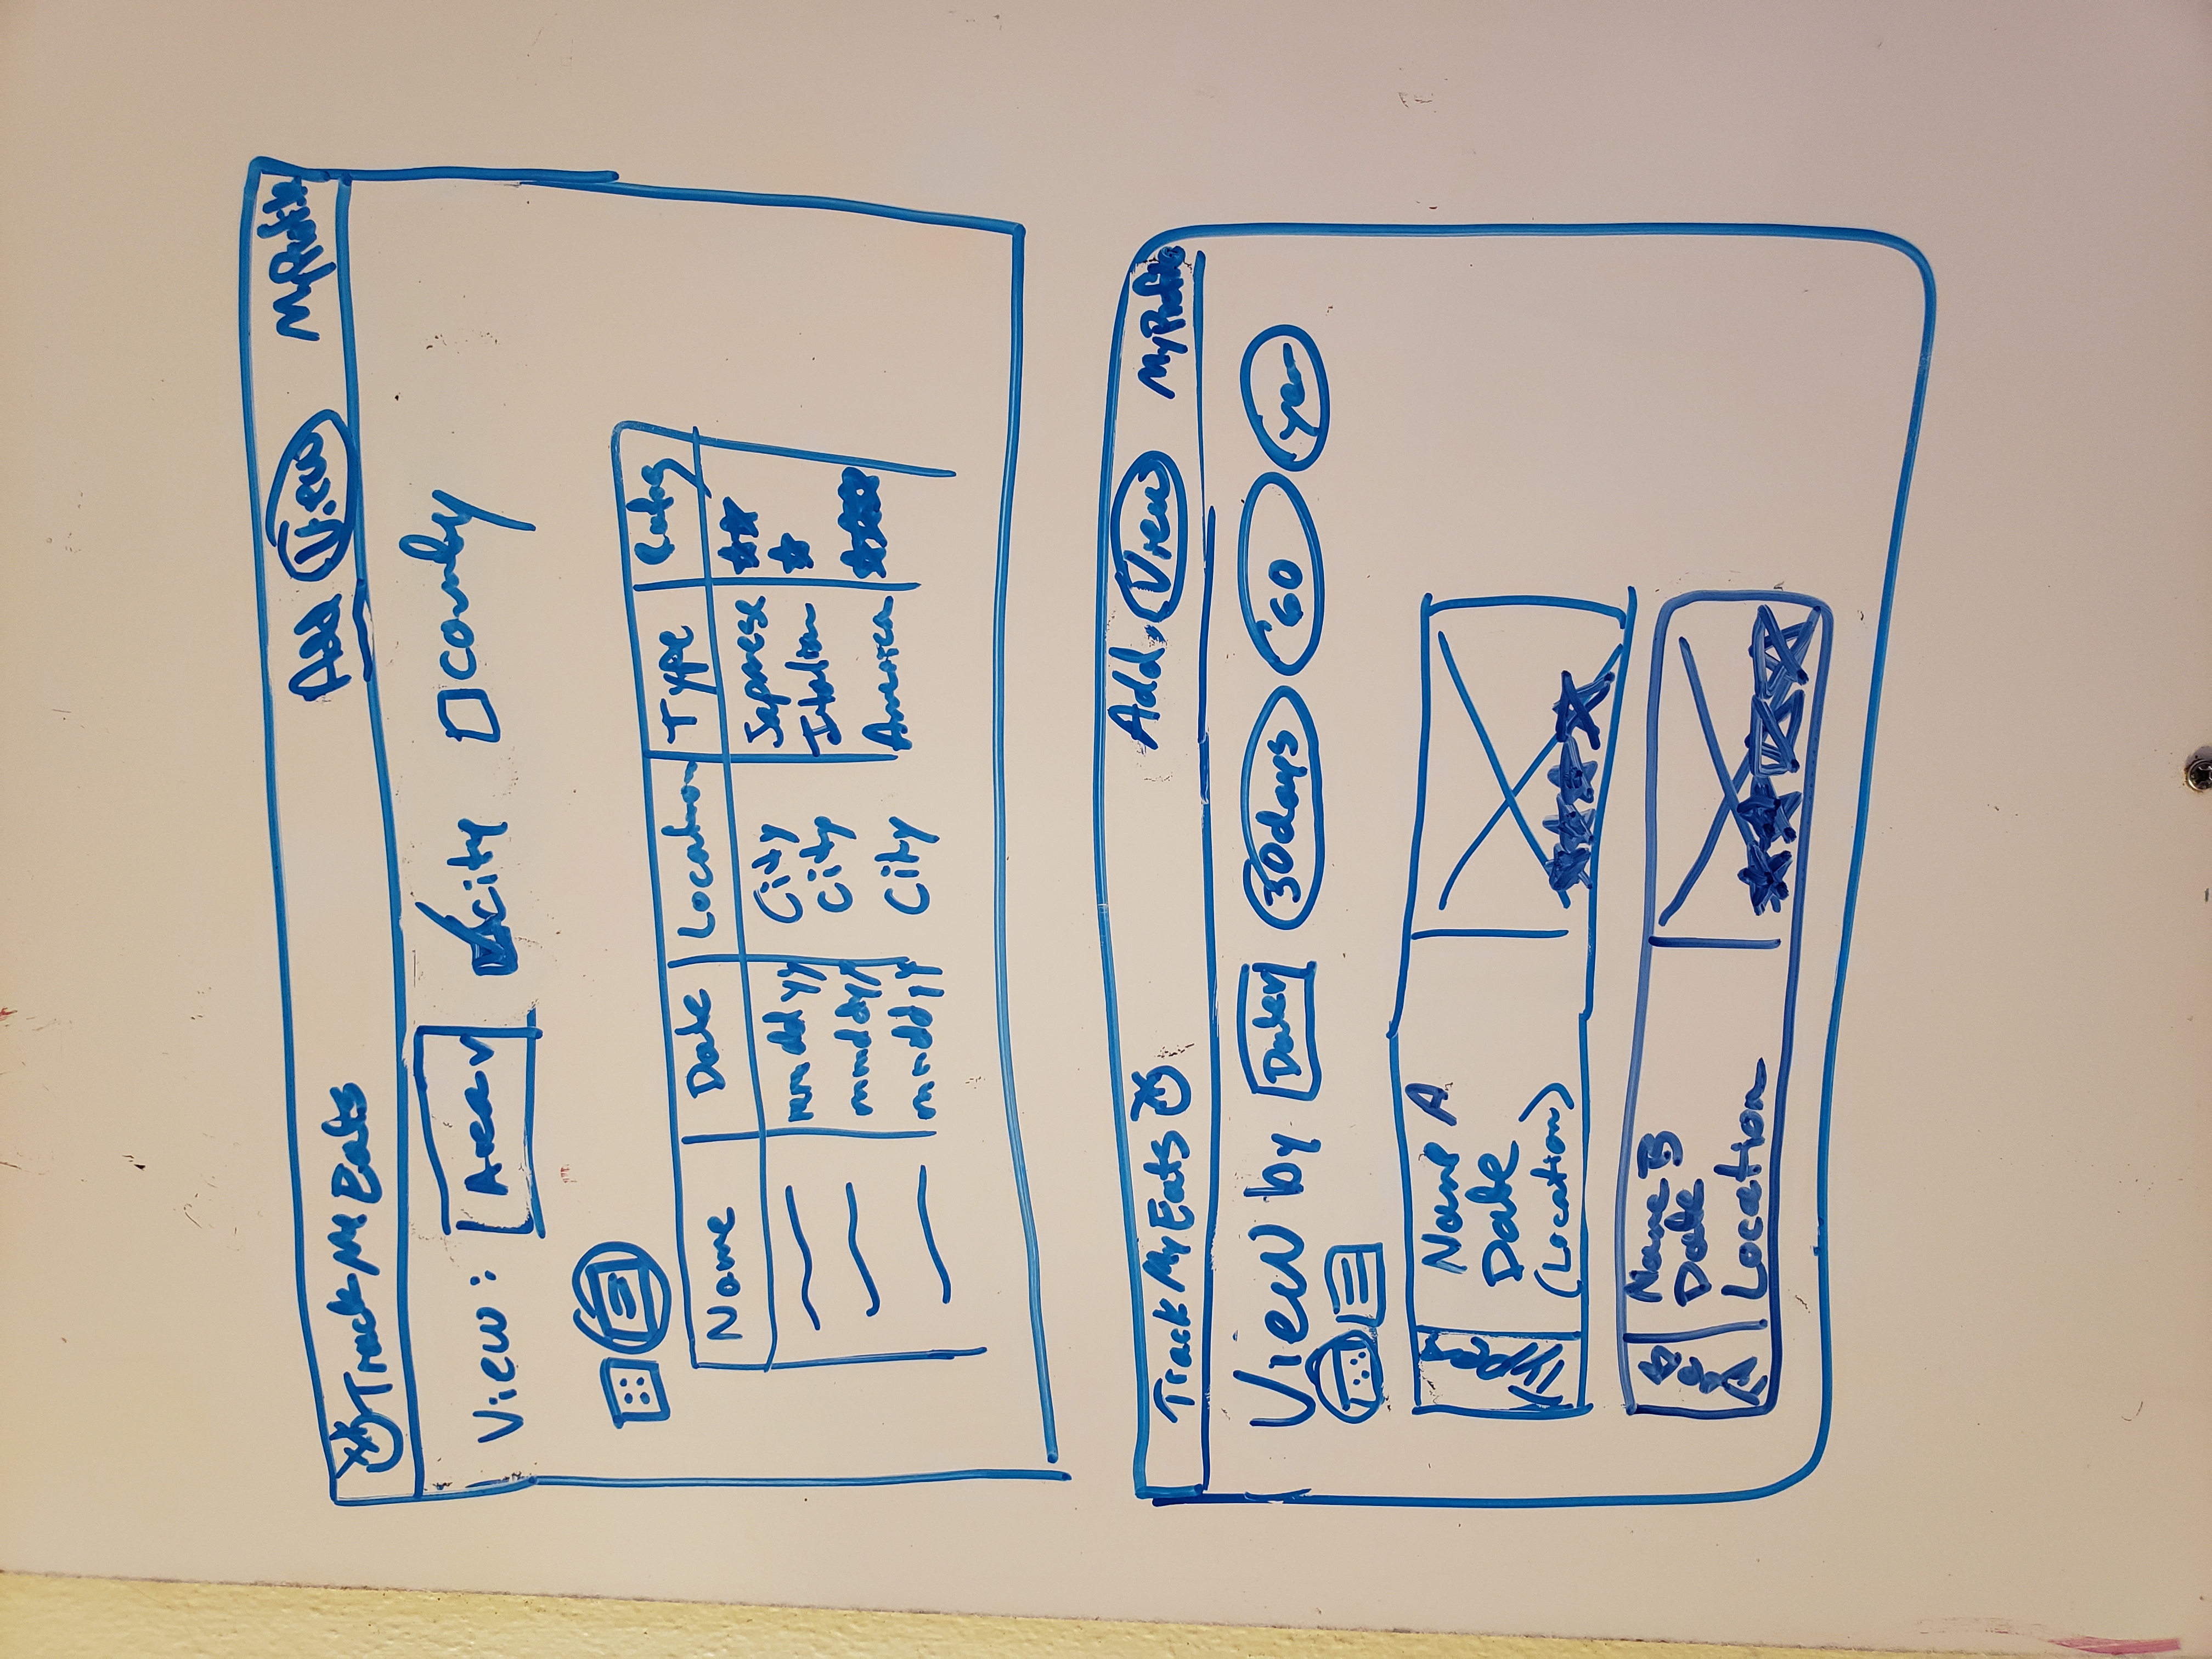 TrackMyEats Add View MyProfile
View: Area city county
Name Date Location Type Rating
mmddyy City Japanese
mmddyy City Italian
mmddyy City American
TrackMyEats Add View MyProfile
View by Date 30days 60 year
Type A
Name A
Date
(Location)
Type B
Name B
Date
Location